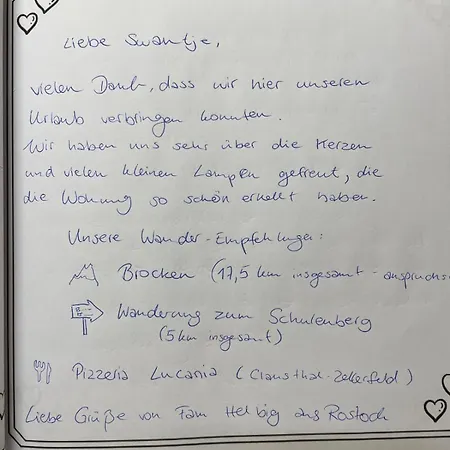 Liebe Swantje,
vielen Dank, dass wir hier unseren
Urlaub verbringen konnten.
Wir haben uns sehr über die Kerzen
und vielen kleinen Lampen gefreut, die
die Wohnung so schön erhellt haben.
Unsere Wander-Empfehlungen:
Brocken (17,5 km insgesamt - anspruchs
Wanderung zum Schulenberg
(5 km insgesamt)
Pizzeria Lucania (Clausthal-Zellerfeld)
Liebe Grüße von Fam Helbig aus Rostock